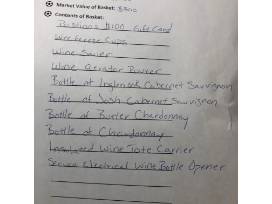 Market Value of Basket: $300
Contents of Basket:
$100 Gift Card
Wine Cups
Wine Saver
Wine Aerator Pourer
Bottle of Inglenook Cabernet Sauvignon
Bottle of Josh Cabernet Sauvignon
Bottle of Butler Chardonnay
Bottle of Chardonnay
Insulated Wine Tote Carrier
Secura Electrical Wine Bottle Opener